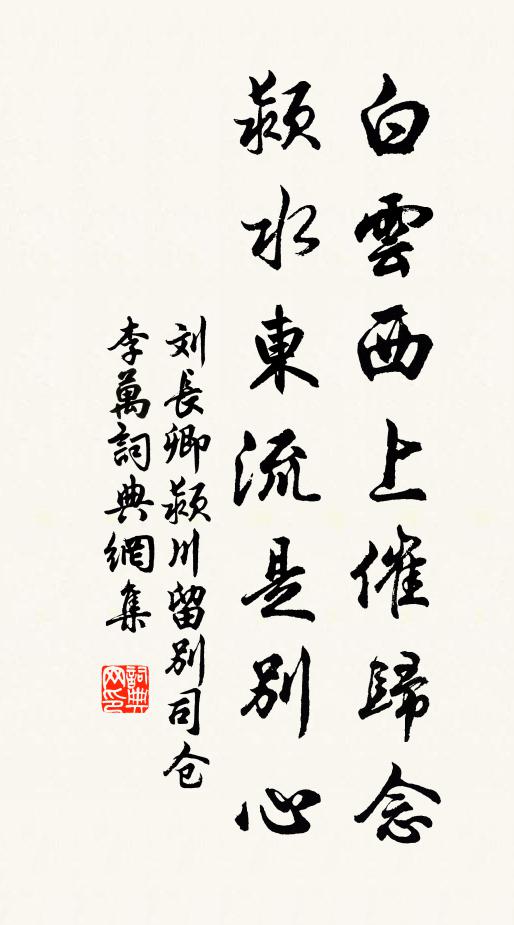 白雲西上催歸念
潁水東流是別心
刘長卿潁川留別司仓
李萬詞典網集
詞典网印